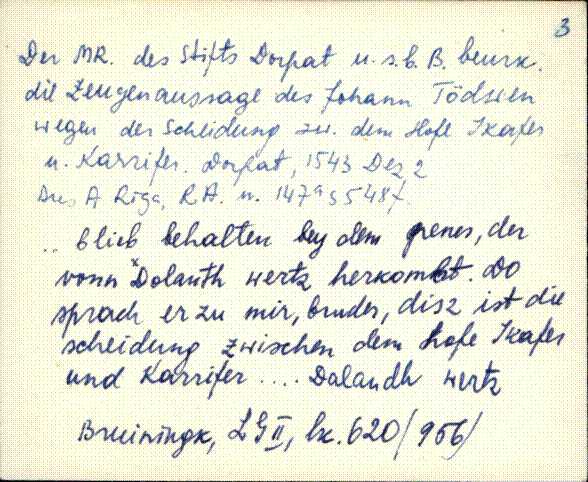 3
Der MR. des Stifts Dorpat u. s. b. B. beurk.
die Zeugenaussage des Johann Tödwen
wegen der Scheidung zw. dem Hofe Ikafer
u. Karrifer. Dorpat, 1543 Dez 2
Aus A Riga, RA. n. 147a S 548f.
.. blieb behalten bey dem grenes, der
vonn Dolauth wertz herkombt. Do
sprach er zu mir, bruder, disz ist die
scheidung zwischen dem hofe Ikafer
und Karrifer .... Dalandh wertz
Bruiningk, LG II, lk. 620 /956/